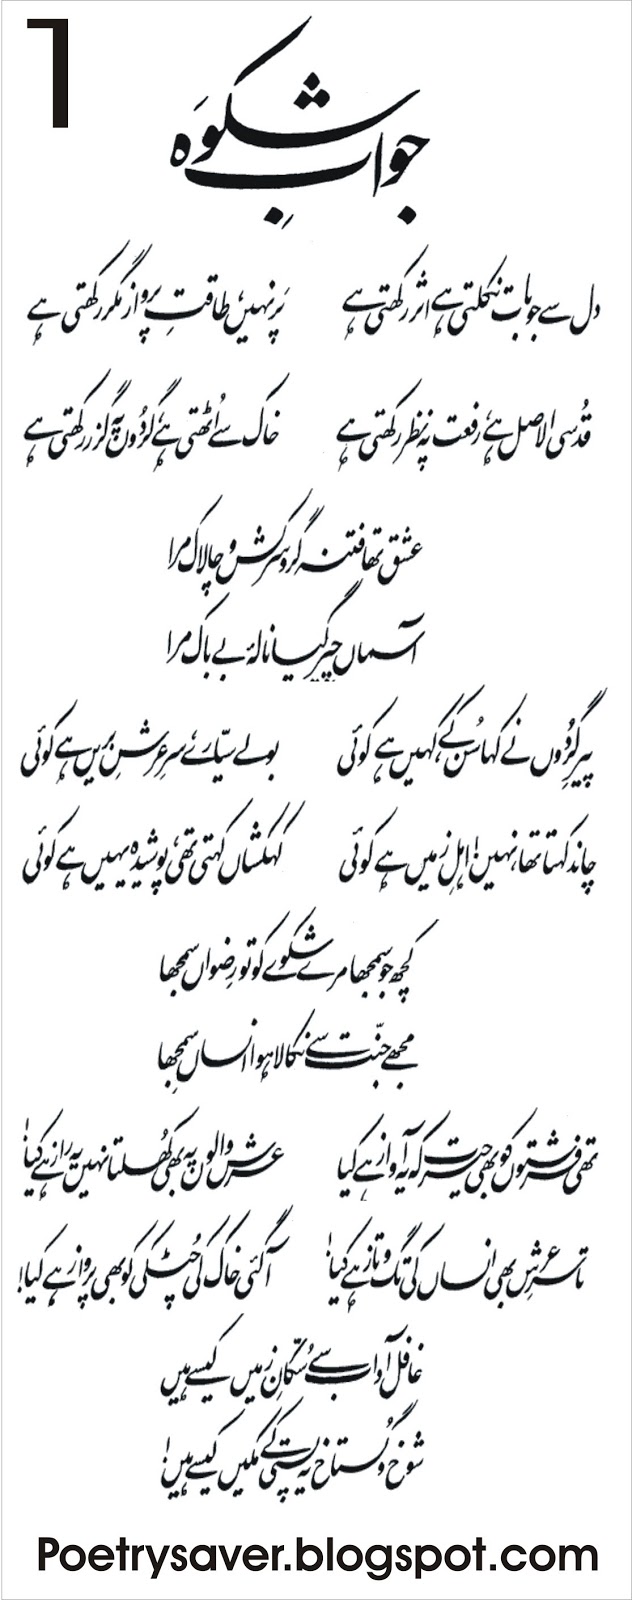 1
جوابِ شکوَہ
دل سے جو بات نکلتی ہے اثر رکھتی ہے
پَر نہیں، طاقتِ پرواز مگر رکھتی ہے
قُدسی الاصل ہے، رفعت پہ نظر رکھتی ہے
خاک سے اُٹھتی ہے، گردُوں پہ گزر رکھتی ہے
عشق تھا فتنہ گر و سرکش و چالاک مرا
آسماں چیر گیا نالۂ بے باک مرا
پیرِ گردُوں نے کہا سُن کے، کہیں ہے کوئی
بولے سیّارے، سرِ عرشِ بریں ہے کوئی
چاند کہتا تھا، نہیں! اہلِ زمیں ہے کوئی
کہکشاں کہتی تھی، پوشیدہ یہیں ہے کوئی
کچھ جو سمجھا مرے شکوے کو تو رضواں سمجھا
مجھے جنّت سے نکالا ہوا انساں سمجھا
تھی فرشتوں کو بھی حیرت کہ یہ آواز ہے کیا
عرش والوں پہ بھی کھُلتا نہیں یہ راز ہے کیا!
تا سرِ عرش بھی انساں کی تگ و تاز ہے کیا!
آگئی خاک کی چُٹکی کو بھی پرواز ہے کیا!
غافل آداب سے سُکّانِ زمیں کیسے ہیں
شوخ و گُستاخ یہ پستی کے مکیں کیسے ہیں!
Poetrysaver.blogspot.com